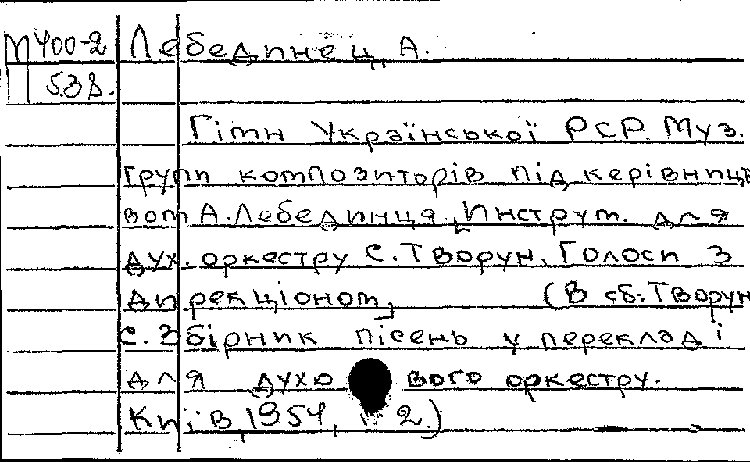 М 400-2 Лебединец, А.
538.
Гімн Української РСР. Муз.
групи композиторів під керівниц
вом А. Лебединця. Инструм. для
дух. оркестру С. Творун. Голоси з
дирекціоном, (В сб: Творун
С. Збірник пісень у перекладі
для духо вого оркестру.
Київ, 1954, № 2.)